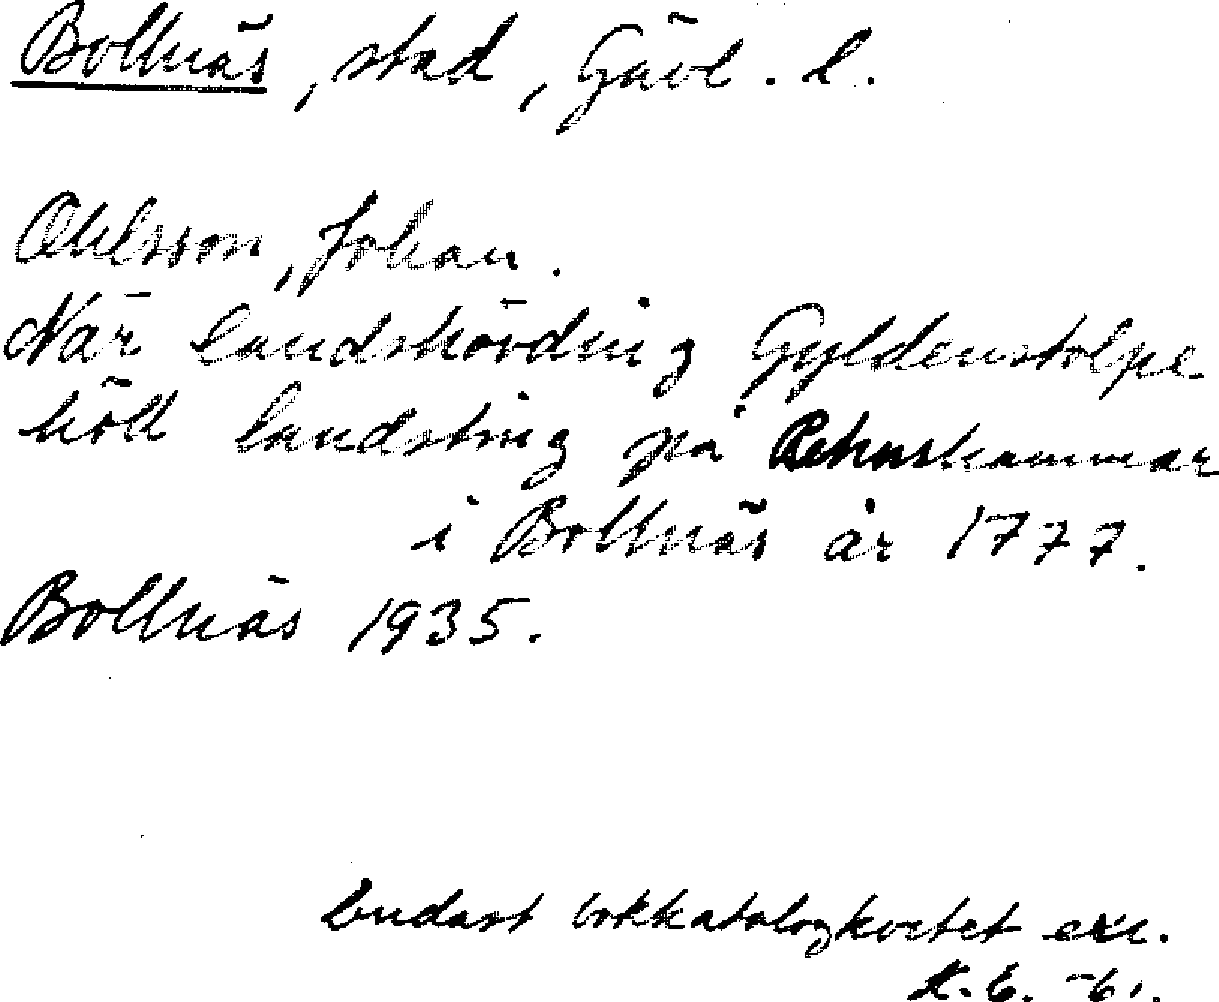 Bollnäs, stad, Gävl. l.
Ohlsson, Johan.
När landshövding Gyldenstolpe
höll landsting på Rehnshammar
i Bollnäs år 1777.
Bollnäs 1935.
Endast lokkatalogkortet ex.
K. E. -61.